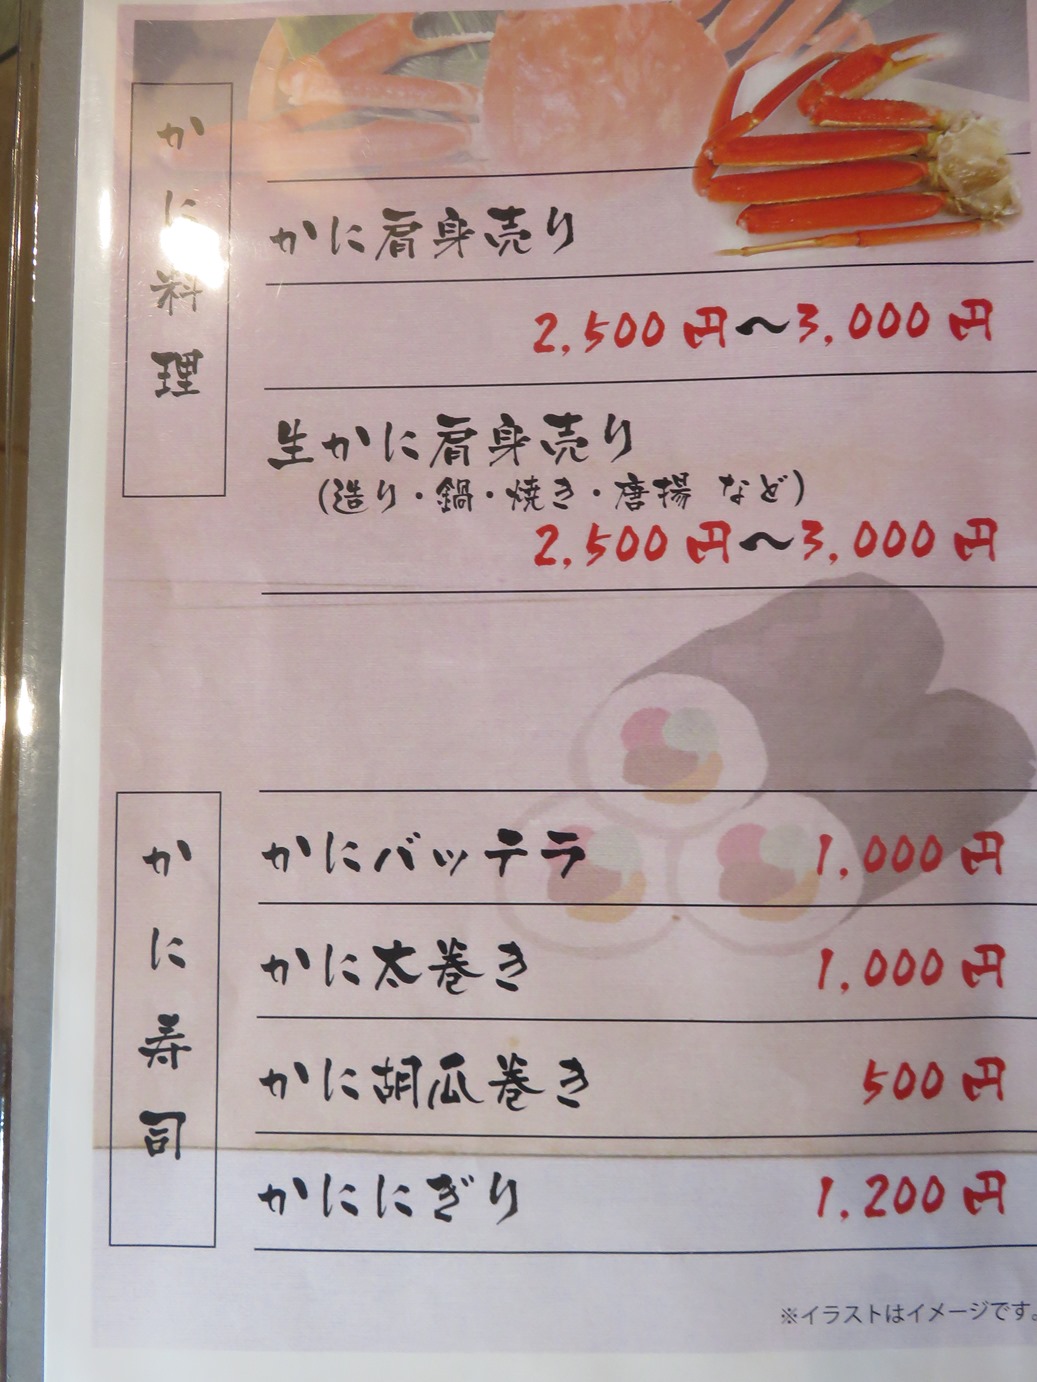 かに料理
かに肩身売り
2,500円〜3,000円
生かに肩身売り
(造り・鍋・焼き・唐揚 など)
2,500円〜3,000円
かに寿司
かにバッテラ 1,000円
かに太巻き 1,000円
かに胡瓜巻き 500円
かににぎり 1,200円
※イラストはイメージです。